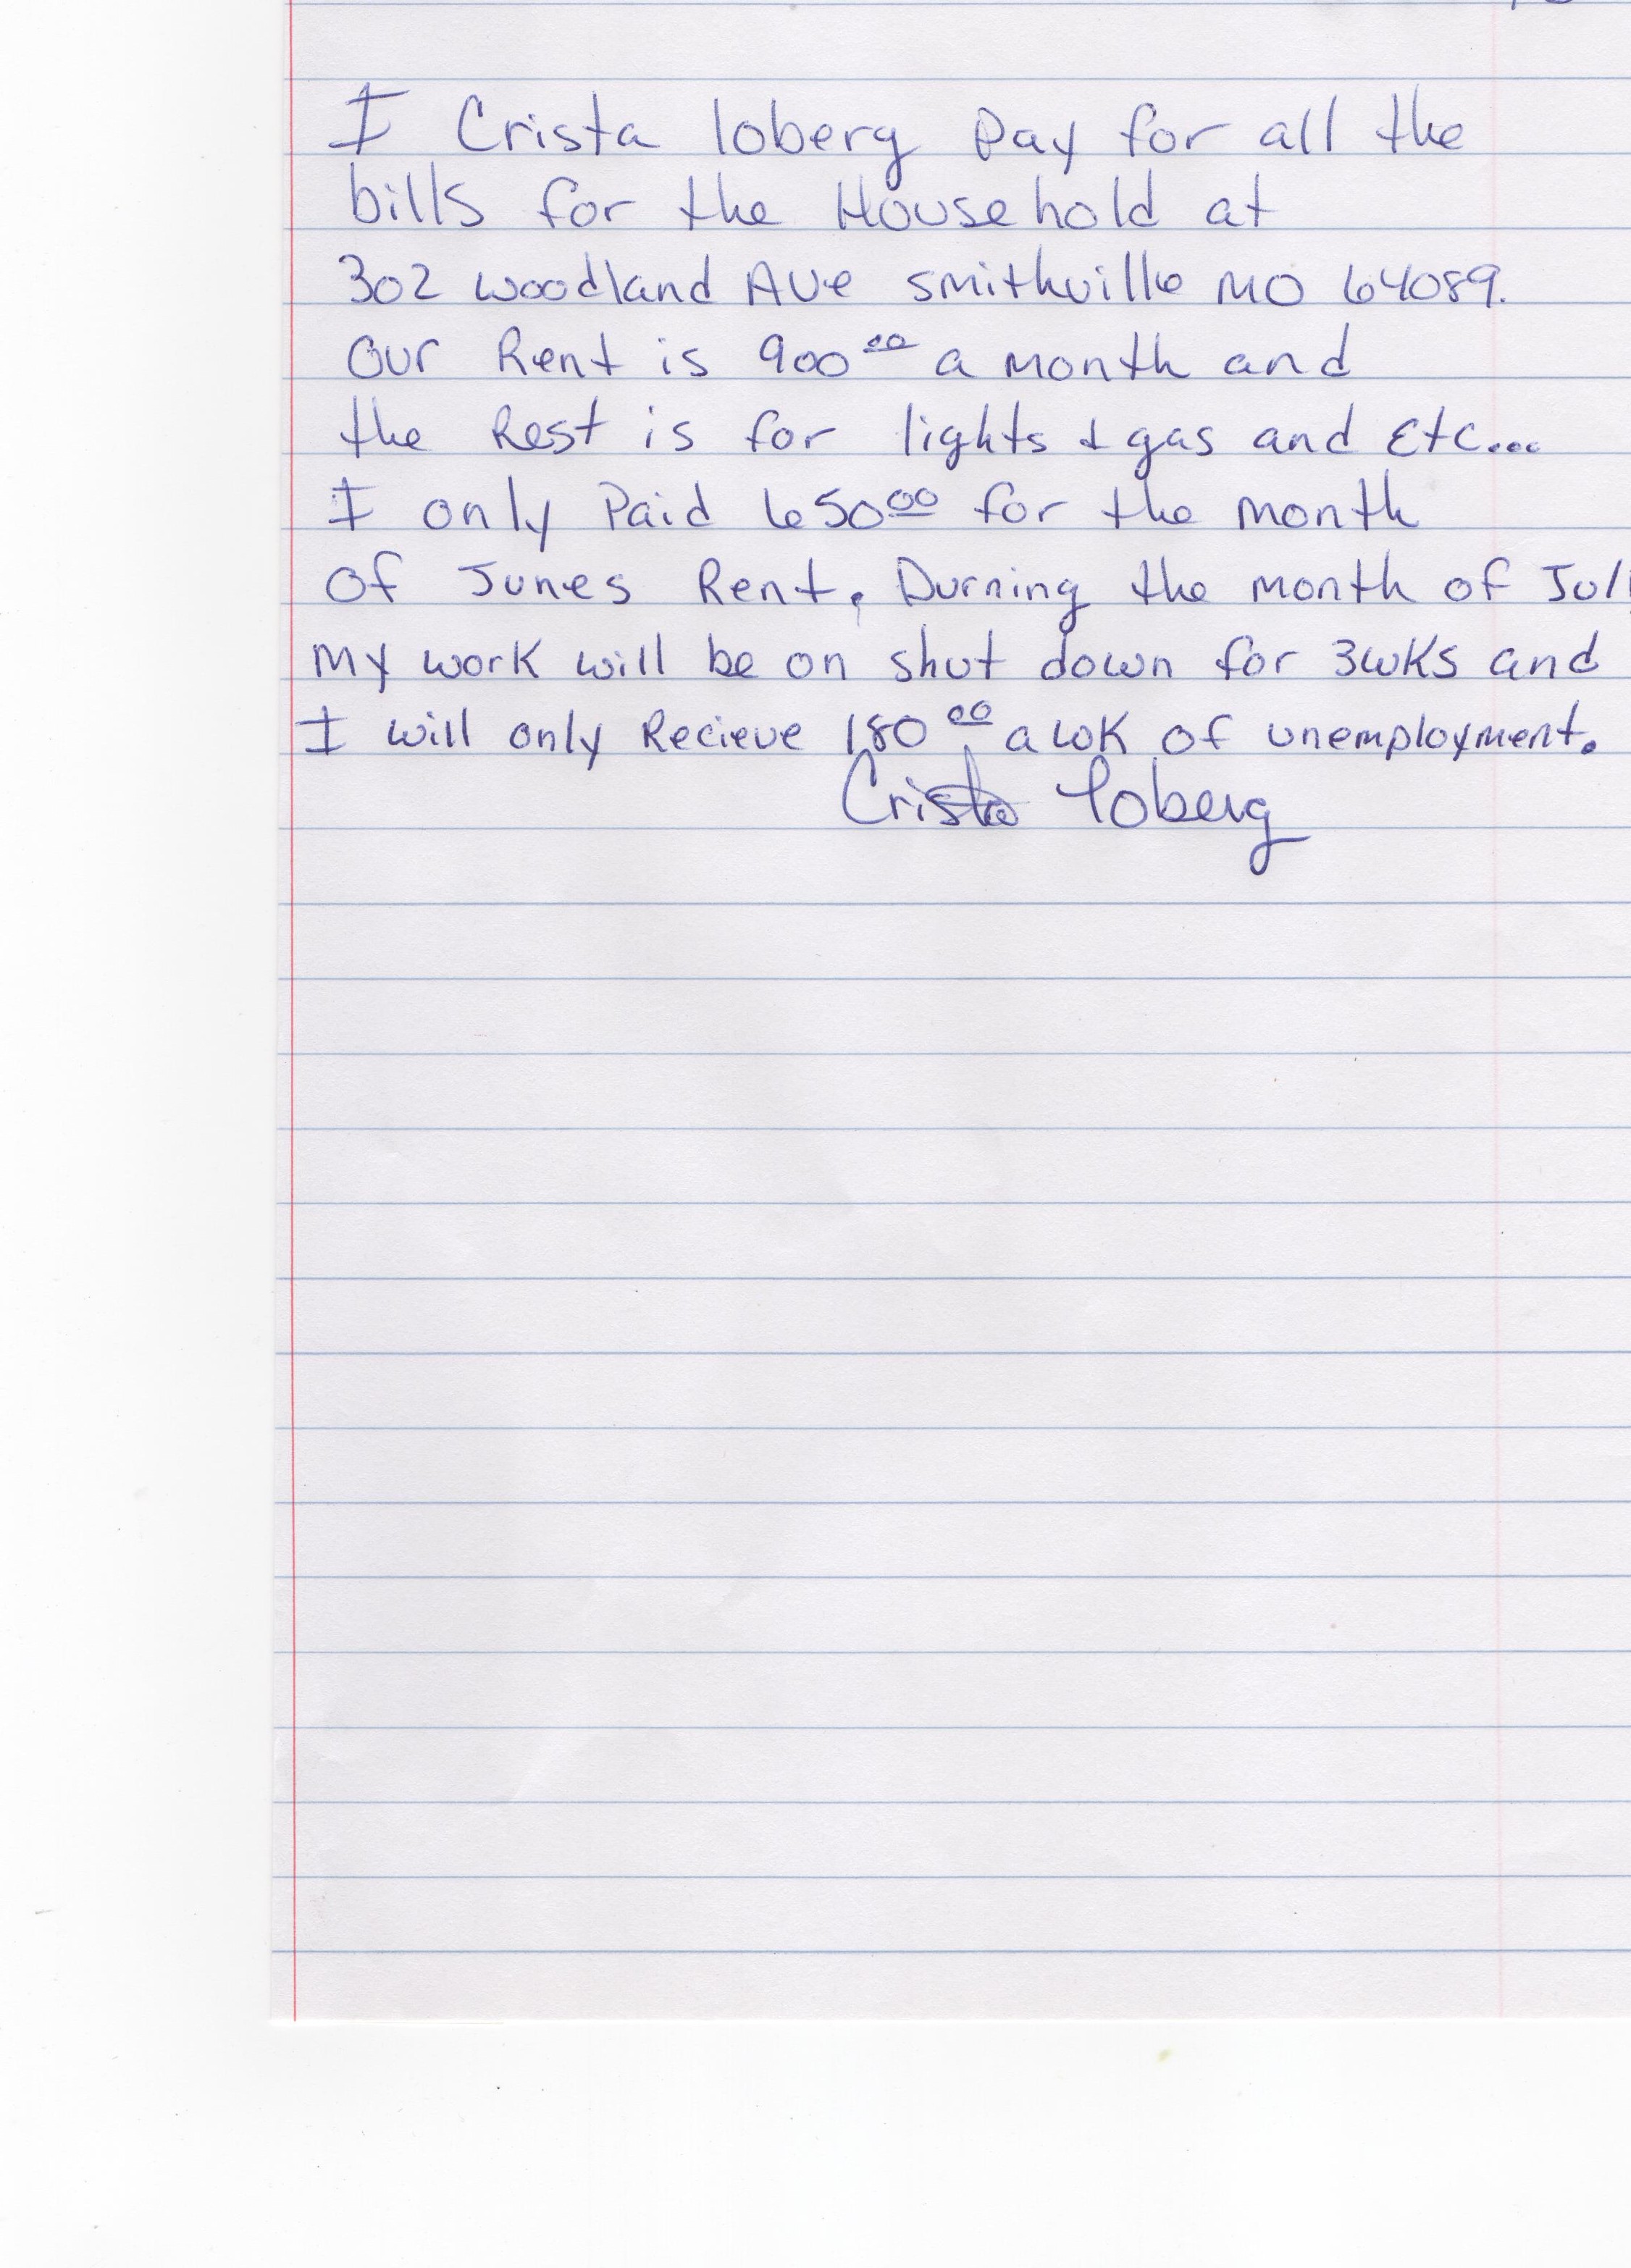 I Crista loberg Pay for all the
bills for the Household at
302 woodland Ave smithville MO 64089.
Our Rent is 900.00 a month and
the Rest is for lights & gas and Etc...
I only Paid 650.00 for the month
Of Junes Rent. Durning the month of Jul
My work will be on shut down for 3wks and
I will only Recieve 180.00 a wk of unemployment.
Crista loberg